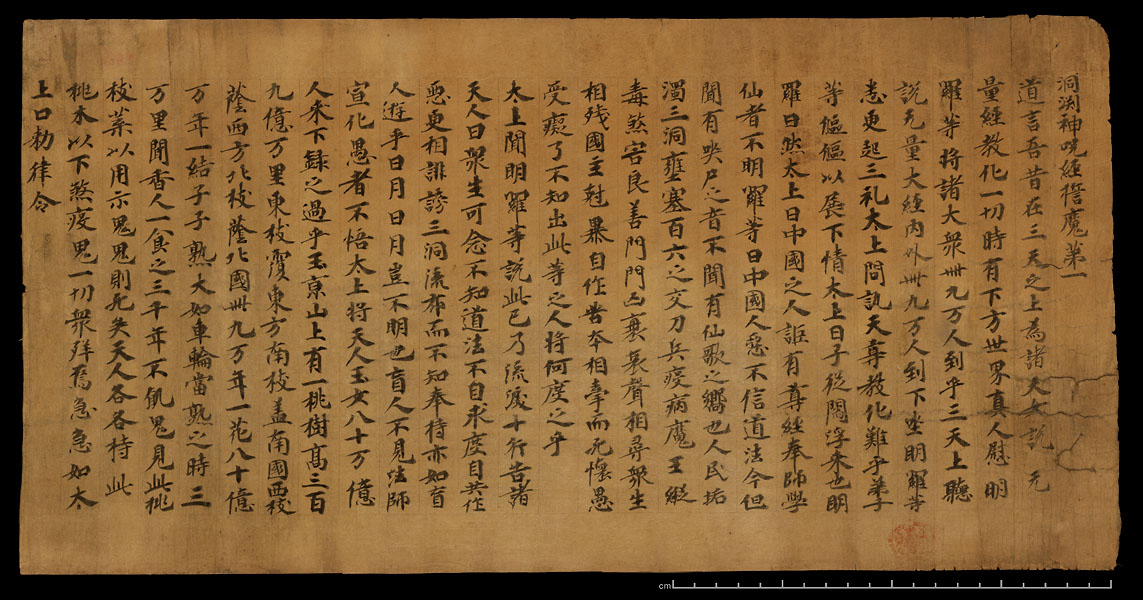 洞渕神呪經擔魔第一
道言吾昔在三天之上為諸天女説无
量經教化一切時有下方世界真人慰明
羅等將諸大衆卌九万人到乎三天上聽
説无量大經内外卌九万人到下坐明羅等
悉更起三礼太上問訊天尊教化難乎弟子
等傴傴以展下情太上曰子從閻浮来也明
羅曰然太上曰中國之人誰有尊經奉師學
仙者不明羅等曰中國人悉不信道法今但
聞有哭尸之音不聞有仙歌之嚮也人民垢
濁三洞壅塞百六之交刀兵疫病魔王縱
毒煞害良善門門凶衰哀聲相尋衆生
相殘國主尅暴自作咎夲相牽而死愚
受癡了不知出此等之人將何座之乎
太上聞明羅等説此已乃流淚十行告諸
天人曰衆生可念不知道法不自求度自共作
惡更相誹謗三洞流布而不知奉持亦如盲
人遊乎日月日月豈不明也盲人不見法師
宣化愚者不悟太上將天人玉女八十万億
人来下録之過乎玉京山上有一桃樹髙三百
九億万里東枝覆東方南枝盖南國西枝
蔭西方北枝蔭北國卅九万年一花八十億
万年一結子子熟大如車輪當熟之時三
万里聞香人一食之三千年不飢鬼見此桃
枝葉以用示鬼鬼則死矣天人各各持此
桃木以下煞疫鬼一切衆祥焉急急如太
上口勑律令
cm